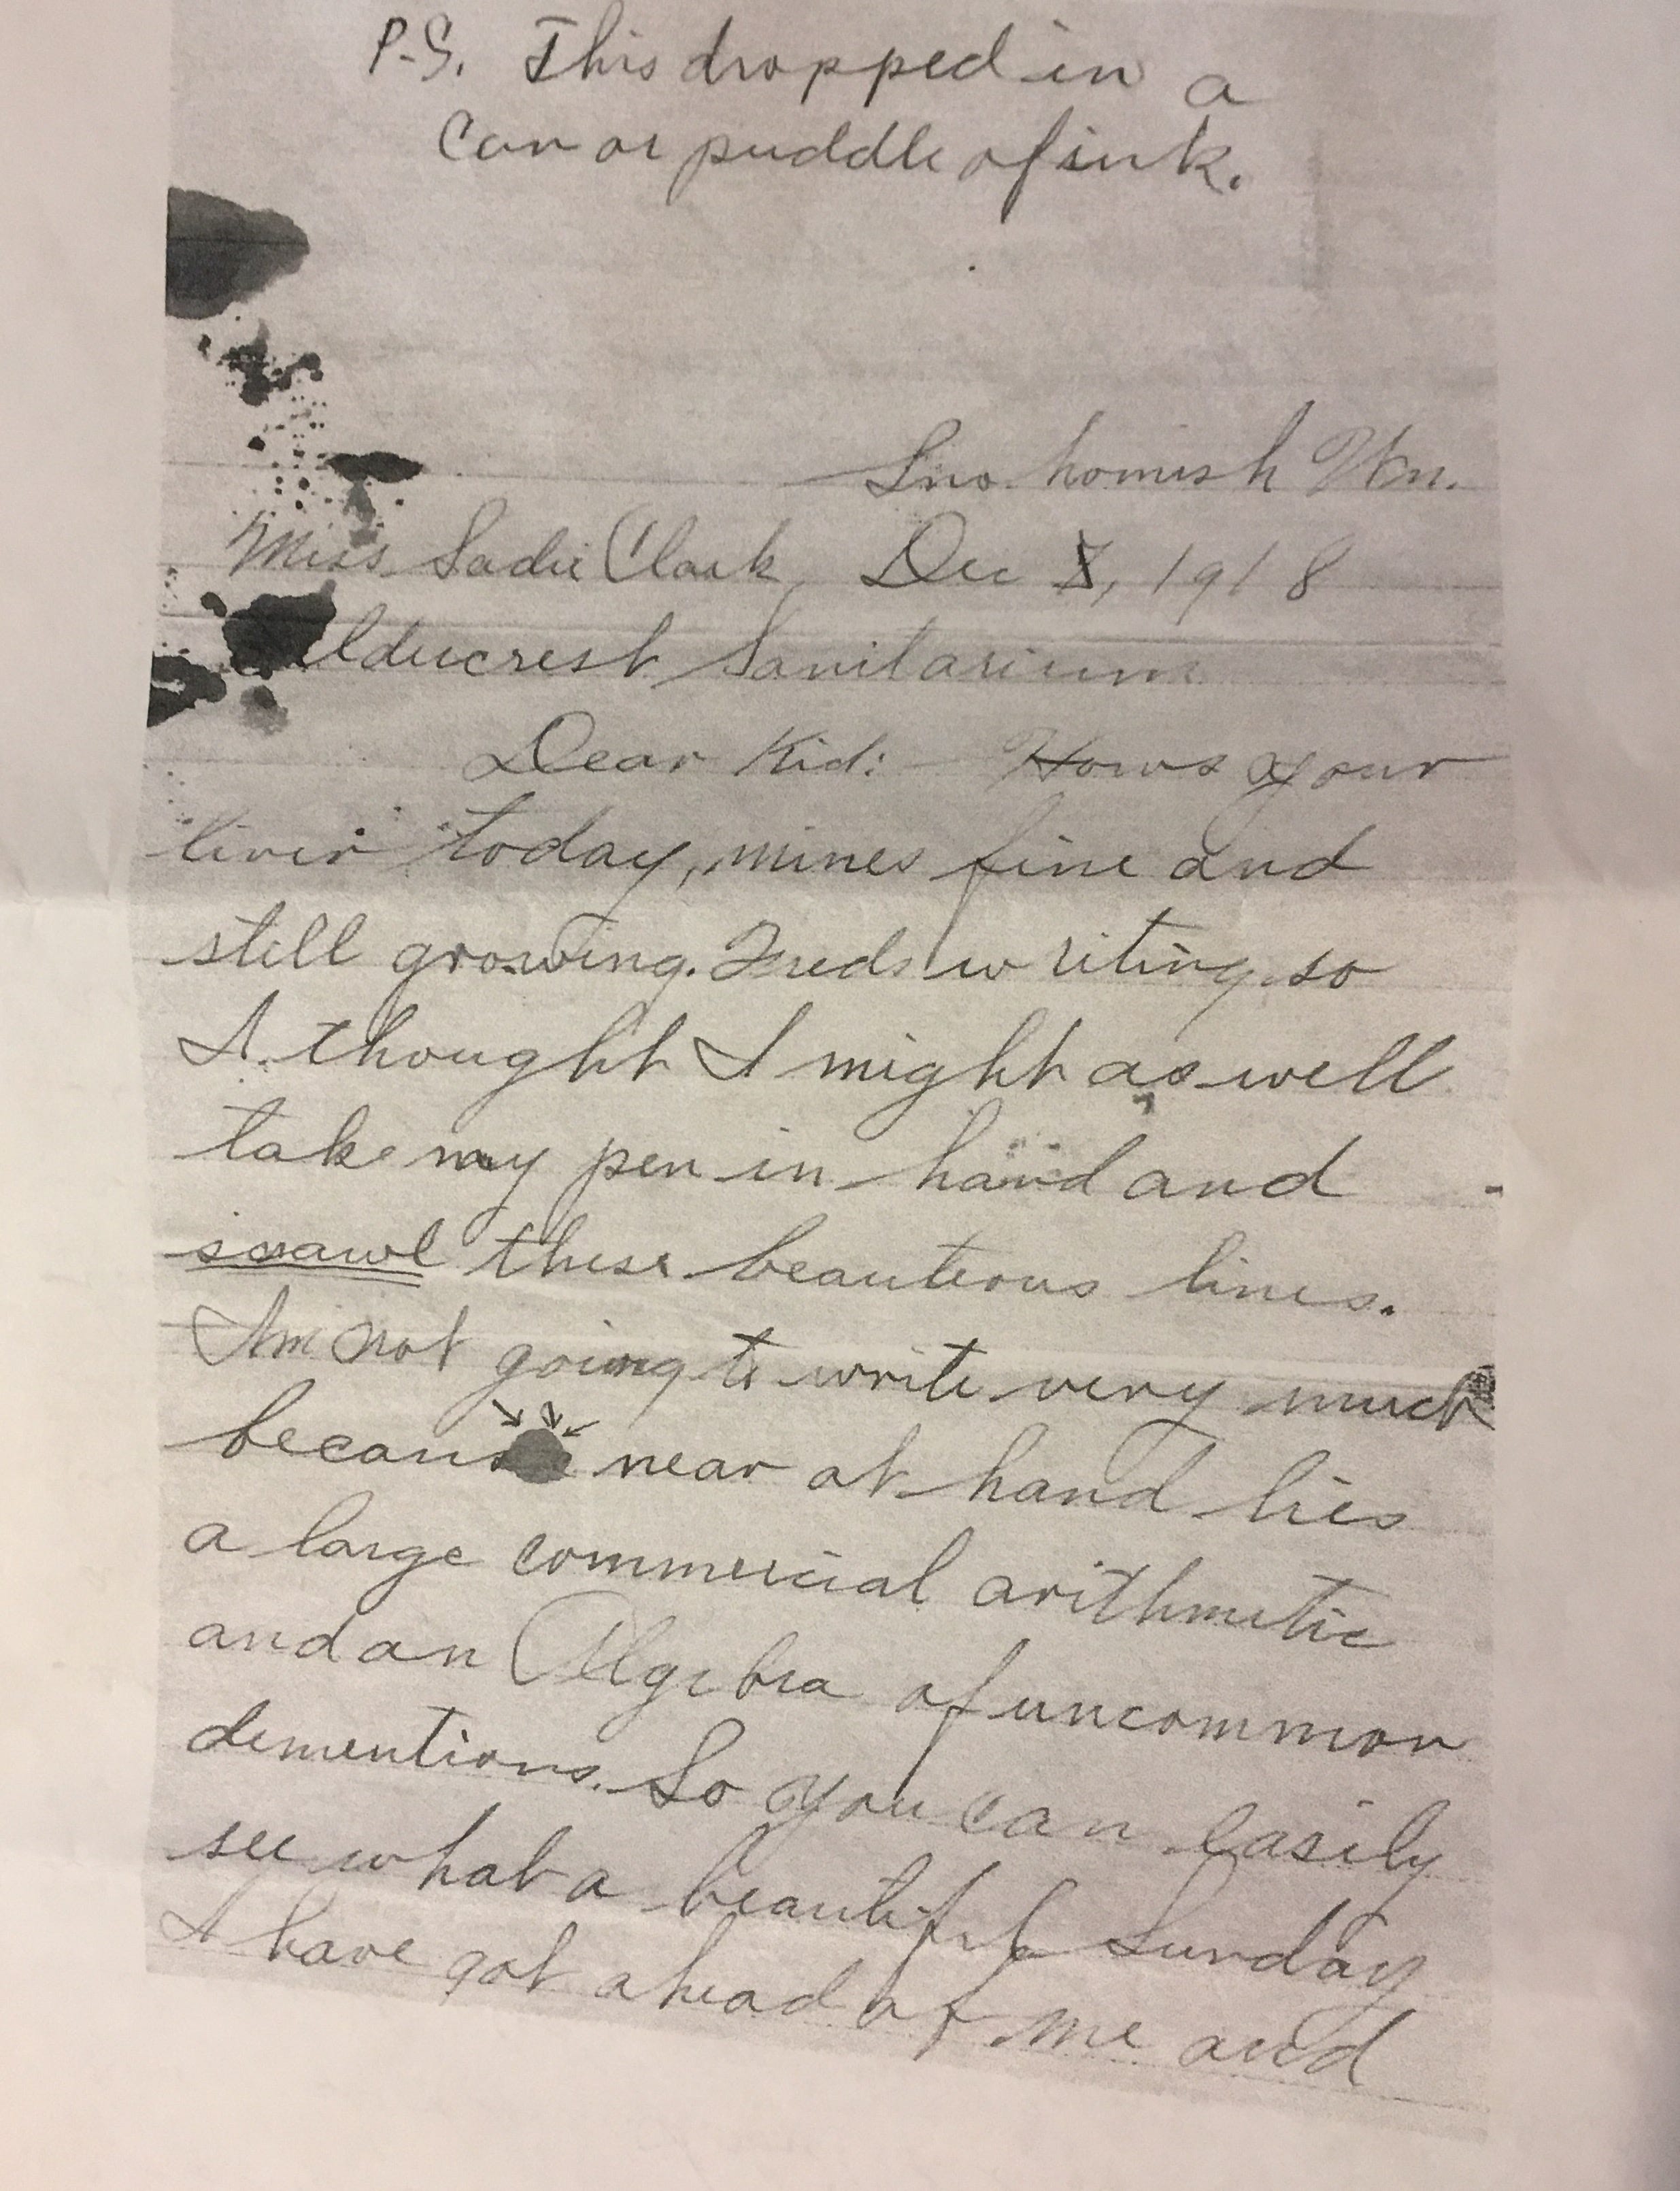 P.S. This dropped in a
Can or puddle of ink.
Snohomish Wn.
Miss Sadie Clark, Dec 8, 1918
Aldercrest Sanitarium
Dear Kid:- Hows your
liver today, mines fine and
still growing. Freds writing so
I thought I might as well
take my pen in hand and
scrawl these beauteous lines.
Am not going to write very much
because near at hand lies
a large commercial arithmetic
and an Algebra of uncommon
dementions. So you can easily
see what a beautiful Sunday
I have got ahead of me and